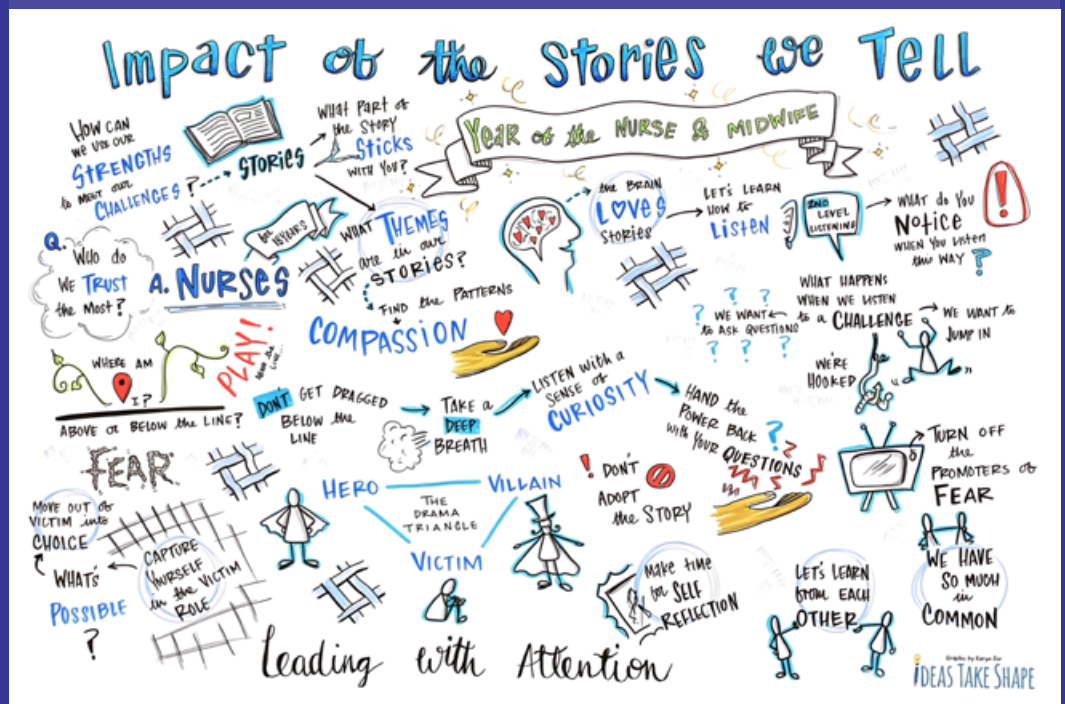 Impact of the Stories we Tell
HOW CAN
we use our
STRENGTHS
to meet our
CHALLENGES?
STORIES
WHAT PART of
the STORY
Sticks
WITH YOU?
Year of the NURSE & MIDWIFE
Q.
WHO do
WE TRUST
the Most?
for 18 YEARS
A. NURSES
WHAT THEMES
are in our
STORIES?
FIND the PATTERNS
COMPASSION
the BRAIN
LOVES
stories
LET'S LEARN
HOW to
Listen
2ND
LEVEL
LISTENING
WHAT do YOU
NOTICE
WHEN YOU listen
this WAY?
!
WHAT HAPPENS
WHEN WE LISTEN
to a CHALLENGE
? ? ?
?
WE WANT
to ASK QUESTIONS
? ? ?
WE WANT to
JUMP IN
WE'RE
HOOKED
WHERE AM
I?
PLAY!
ABOVE or BELOW the LINE?
FEAR
DON'T GET DRAGGED
BELOW the
LINE
TAKE a
DEEP
BREATH
LISTEN WITH a
SENSE of
CURIOSITY
HAND the
POWER BACK
with YOUR QUESTIONS
?
TURN OFF
the
PROMOTERS of
FEAR
MOVE OUT of
VICTIM into
CHOICE
WHAT'S
POSSIBLE
?
CAPTURE
YOURSELF
in the VICTIM
ROLE
HERO
VILLAIN
THE
DRAMA
TRIANGLE
VICTIM
! DON'T
ADOPT
the STORY
Make time
for SELF
REFLECTION
LET'S LEARN
from EACH
OTHER
WE HAVE
SO MUCH
in
COMMON
Leading with Attention
iDEAS TAKE SHAPE